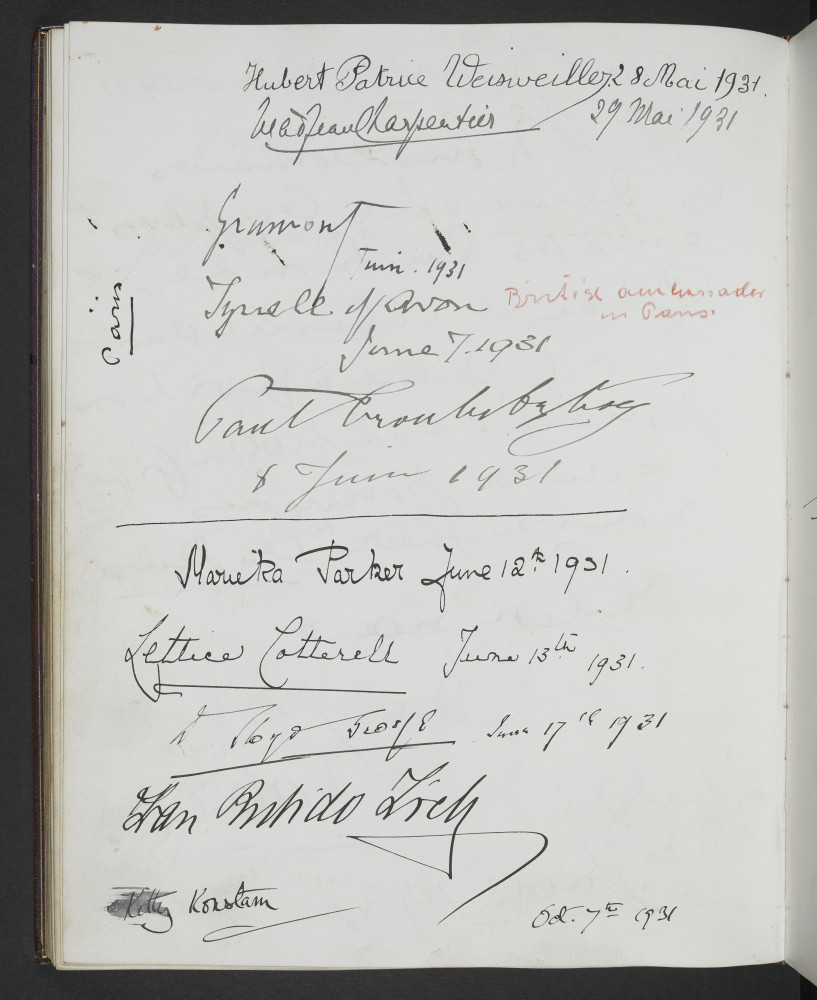 Hubert Patrice Weisweiller 28 Mai 1931.
Jean Charpentier 29 Mai 1931
Gramont
Juin. 1931
Paris
Tyrrell of Avon British ambassador
in Paris.
June 7. 1931
Paul
8 Juin 1931
Marietka Parker June 12th 1931.
Lettice Cotterell June 13th 1931.
D Lloyd George June 17th 1931
Kitty Konstam Oct. 7th 1931